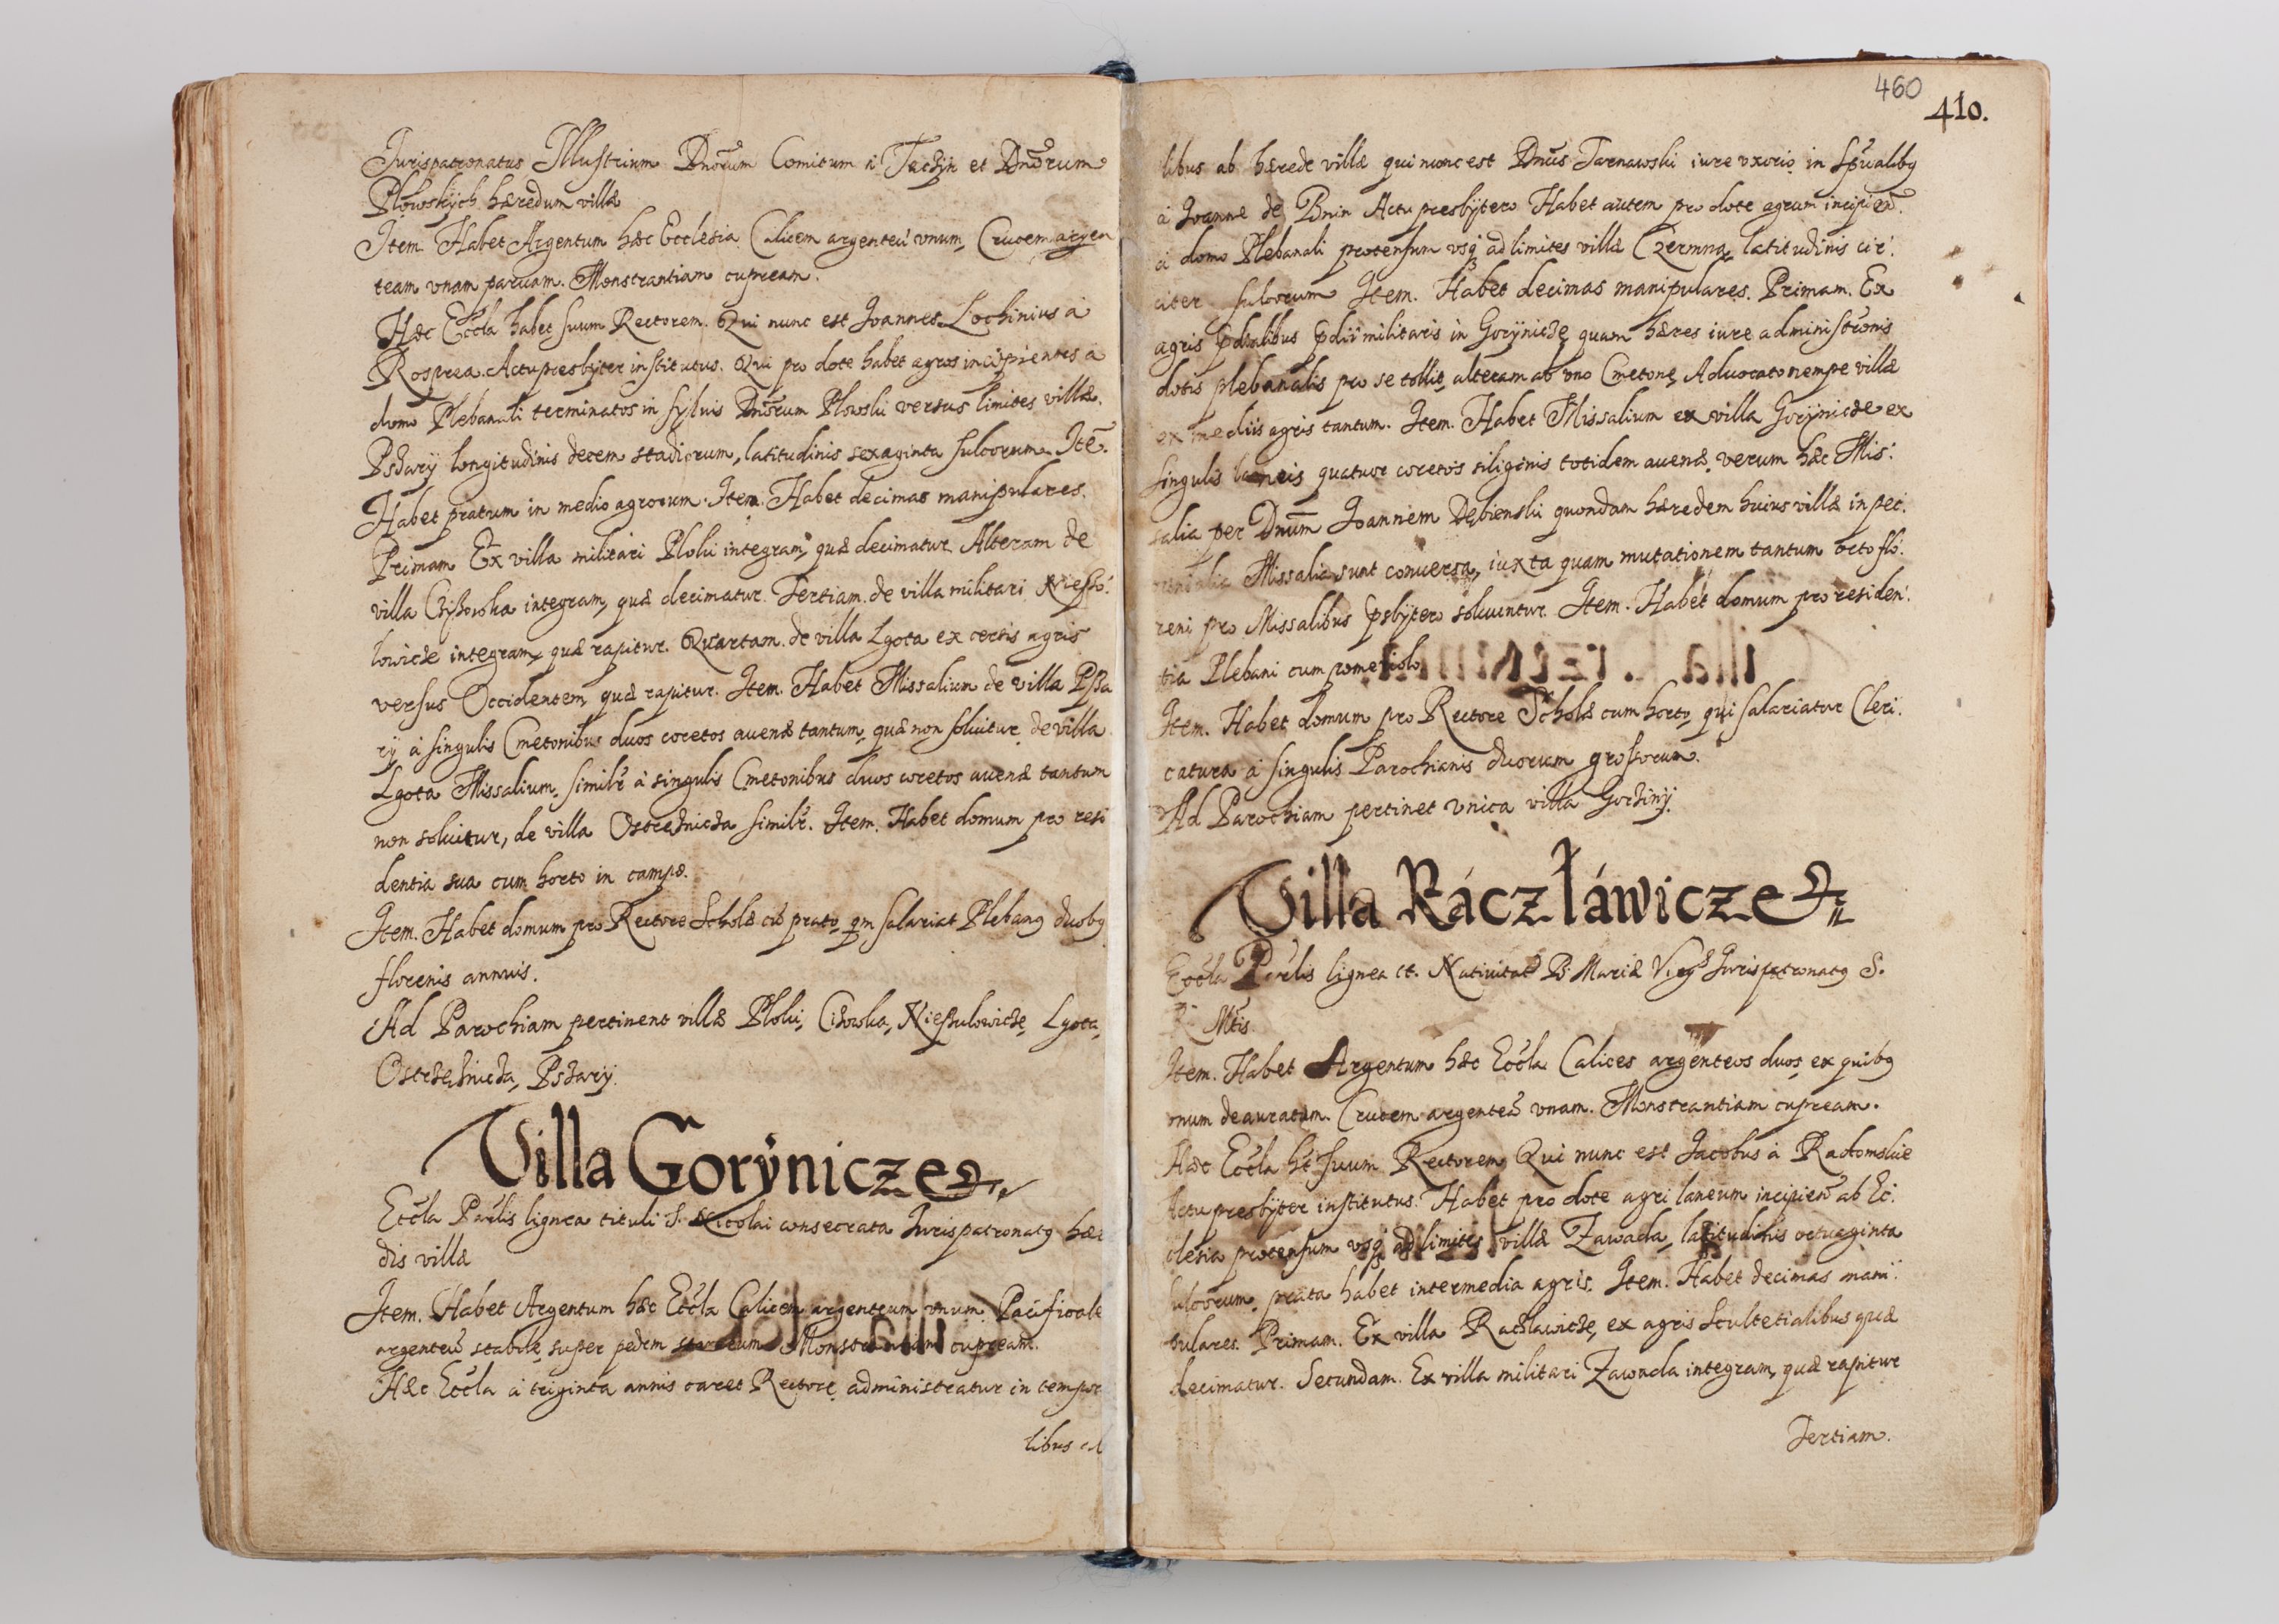 Jurispatronatus Illustrium Dnōrum Comitum à Tęczÿn et Dnōrum
Płowskÿch hæredum villæ
Item. Habet Argentum hæc Ecclesia Calicem argenteū vnum, Crucem argen
team vnam paruam. Monstrantiam cupream.
Hæc Eccla habet suum Rectorem. Qui nunc est Joannes Lochinius à
Rosprea. Actu presbÿter institutus. Qui pro dote habet agros incipientes à
domo Plebanali terminatos in syluis Dnōrum Plowski versus limites villæ
Psarÿ longitudinis decem stadiorum, latitudinis sexaginta sulcorum. Itē.
Habet pratum in medio agrorum. Item. Habet decimas manipulares.
Primam Ex villa militari Ploki integram, quæ decimatur. Alteram de
villa Czÿzowka integram, quæ decimatur. Tertiam de villa militari
lowicze integram, quæ rapitur. Quartam. de villa Lgota ex certis agris
versus Occidentem, quæ rapitur. Item. Habet Missalium de villa Psa
rÿ à singulis Cmetonibus duos coretos auenæ tantum, quæ non soluitur, de villa
Lgota Missalium. similr à singulis Cmetonibus duos coretos auenæ tantum
non soluitur, de villa Ostrężnicza similr. Item. Habet domum pro resi
dentia sua cum horto in campo.
Item. Habet domum pro Rectore Scholæ cū prato, qm salariat Plebang duobg
florenis annuis.
Ad Parochiam pertinent villæ Ploki, Cizowka, Nieszulowicze, Lgota,
Ostrzężnicza, Psarÿ.
Villa Gorÿnicze
Eccla Parlis lignea tituli S. Nicolai consecrata Jurispatronatg hær
dis villæ
Item. Habet Argentum hæc Eccla Calicem argenteum vnum. Pacificale
argenteū stabile, super pedem Monstrantiam cupream.
Hæc Eccla à triginta annis caret Rectore, administratur in tempor
libus ab
460
410.
libus ab hærede villæ qui nunc est Dnūs Tarnawski iure vxorio, in spūalibg
à Joanne de Bnin Actu presbÿtero Habet autem pro dote agrum incipien.
à domo Plebanali protensum vsq ad limites villæ Czermna, latitudinis cir.
citer sulcorum Item. Habet decimas manipulares. Primam. Ex
agris militaris in Gorÿnicze quam hæres iure administronis
dotis plebanalis pro se tollit, alteram ab vno Cmetone, Aduocato nempe villæ
ex mediis agris tantum. Item. Habet Missalium ex villa Gorÿnicze ex
singulis laneis quatuor coretos siliginis totidem auenæ, verum hæc Mis.
salia per Dnūm Joannem Dębienski quondam hæredem huius villæ in pec.
unialia Missalia sunt conuersa, iuxta quam mutationem tantum octo flo.
reni pro Missalibus psbÿtero soluuntur. Item. Habet domum pro residen.
tia Plebani cum pomeriolo
Item. Habet domum pro Rectore Scholæ cum horto, qui salariatur Cleri.
catura à singulis Parochianis duorum grossorum.
Ad Parochiam pertinet vnica villa
Villa Ráczłáwicze
Eccla Parlis lignea tt. Natiuitat B. Mariæ Virgs Jurispatronatg S.
R. Mtis.
Item. Habet Argentum hæc Eccla Calices argenteos duos, ex quibg
vnum deauratum. Crucem argenteā vnam. Monstrantiam cupream.
Hæc Eccla ht suum Rectorem Qui nunc est Jacobus à Radomskie
Actu presbÿter institutus. Habet pro dote agri laneum incipien ab Ec.
clesia protensum vsq ad limites villæ Zawada, latitudinis octuaginta
sulcorum, prata habet intermedia agris. Item. Habet decimas mani.
pulares. Primam. Ex villa Raczlawicze, ex agris Scultetialibus quæ
decimatur. Secundam. Ex villa militari Zawada integram, quæ rapitur
Tertiam.